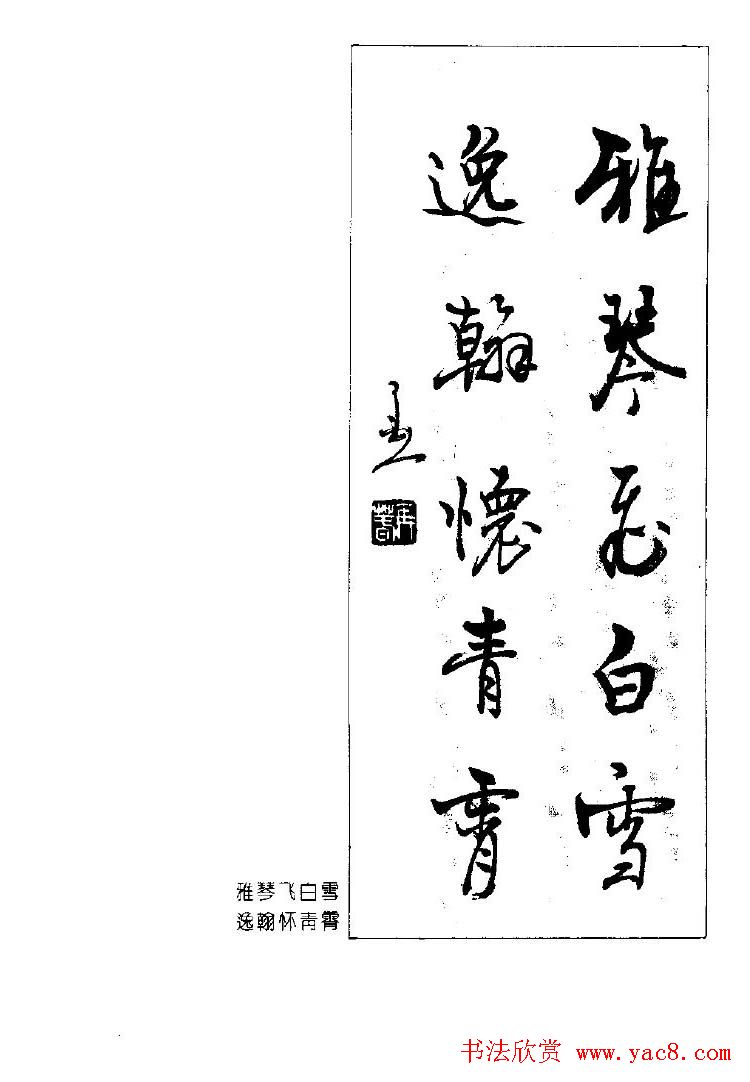 雅琴飞白雪
逸翰懷青霄
雅琴飞白雪
逸翰怀青霄
书法欣赏 www.yac8.com